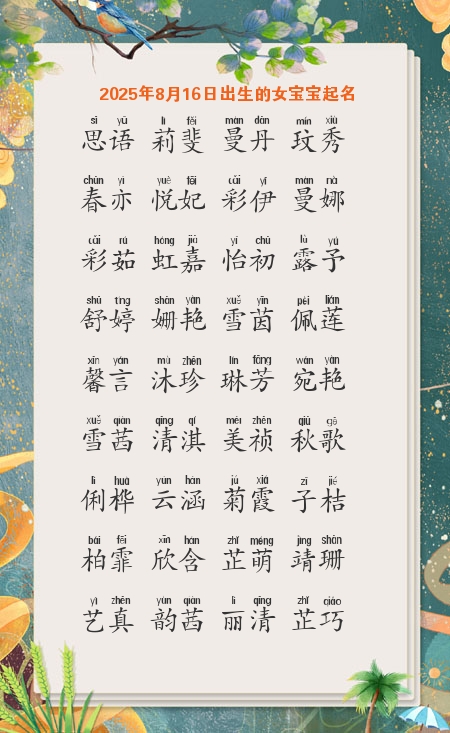 2025年8月16日出生的女宝宝起名
sī yǔ lì fěi màn dān mín xiù
思语 莉斐 曼丹 玟秀
chūn yì yuè fēi cǎi yī màn nà
春亦 悦妃 彩伊 曼娜
cǎi rú hóng jiā yí chū lù yǔ
彩茹 虹嘉 怡初 露予
shū tíng shān yàn xuě yīn pèi lián
舒婷 姗艳 雪茵 佩莲
xīn yán mù zhēn lín fāng wǎn yàn
馨言 沐珍 琳芳 宛艳
xuě qiàn qīng qí měi zhēn qiū gē
雪茜 清淇 美祯 秋歌
lì huà yún hán jú xiá zǐ jié
俐桦 云涵 菊霞 子桔
bǎi fēi xīn hán zhǐ méng jìng shān
柏霏 欣含 芷萌 靖珊
yì zhēn yùn qiàn lì qīng zhǐ qiǎo
艺真 韵茜 丽清 芷巧